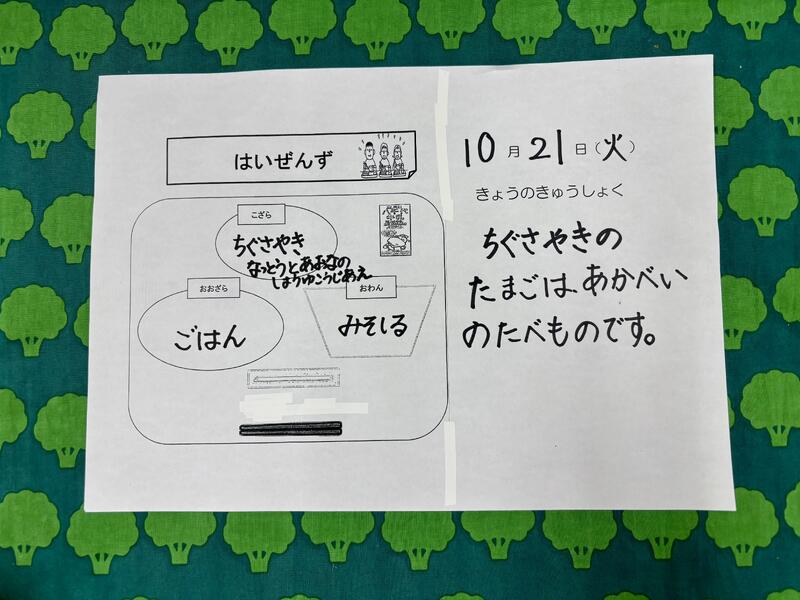 はいぜんず
こざら
ちぐさやき
なっとうとあおなの
しょうゆこうじあえ
おおざら
ごはん
おわん
みそしる
10月21日(火)
きょうのきゅうしょく
ちぐさやきの
たまごは、あかべい
のたべものです。